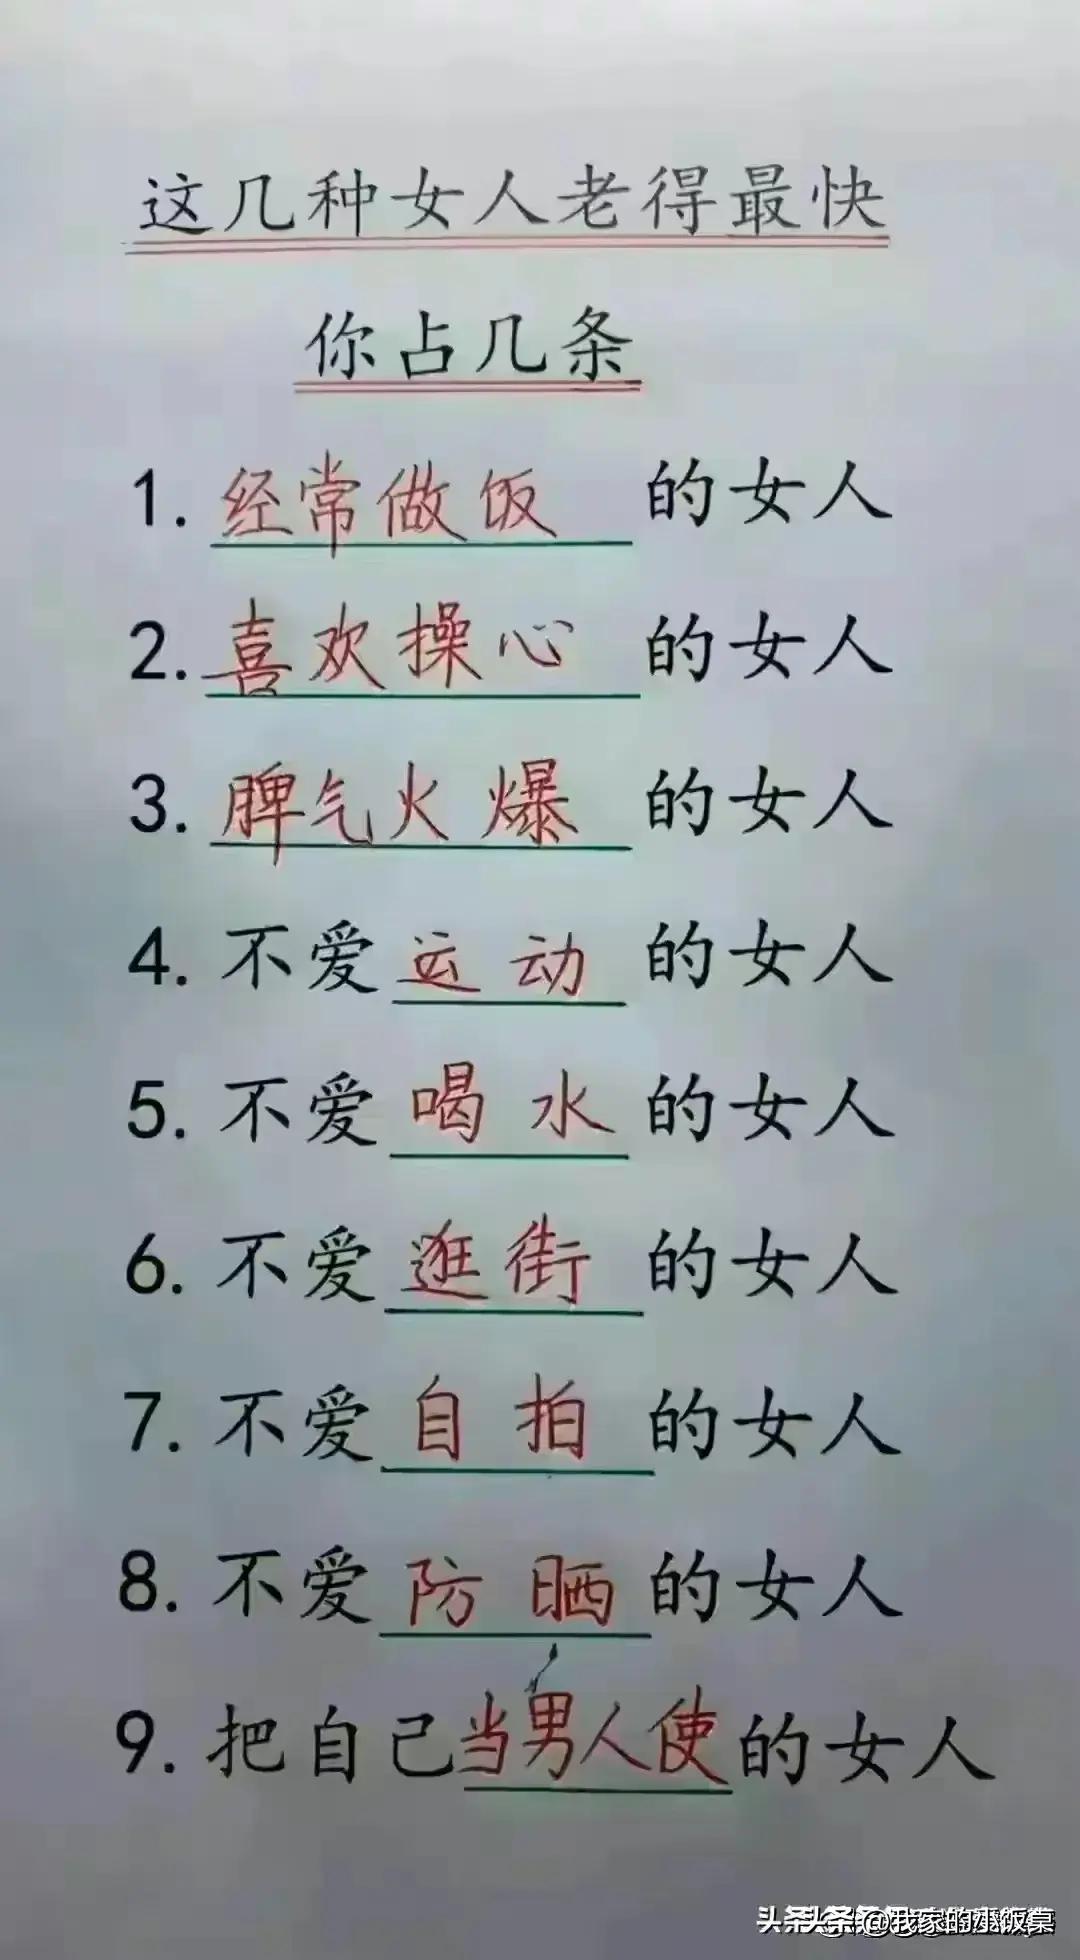 这几种女人老得最快
你占几条
1. 经常做饭 的女人
2. 喜欢操心 的女人
3. 脾气火爆 的女人
4. 不爱 运动 的女人
5. 不爱 喝水 的女人
6. 不爱 逛街 的女人
7. 不爱 自拍 的女人
8. 不爱 防晒 的女人
9. 把自己当男人使的女人
头条 @我家的小饭桌